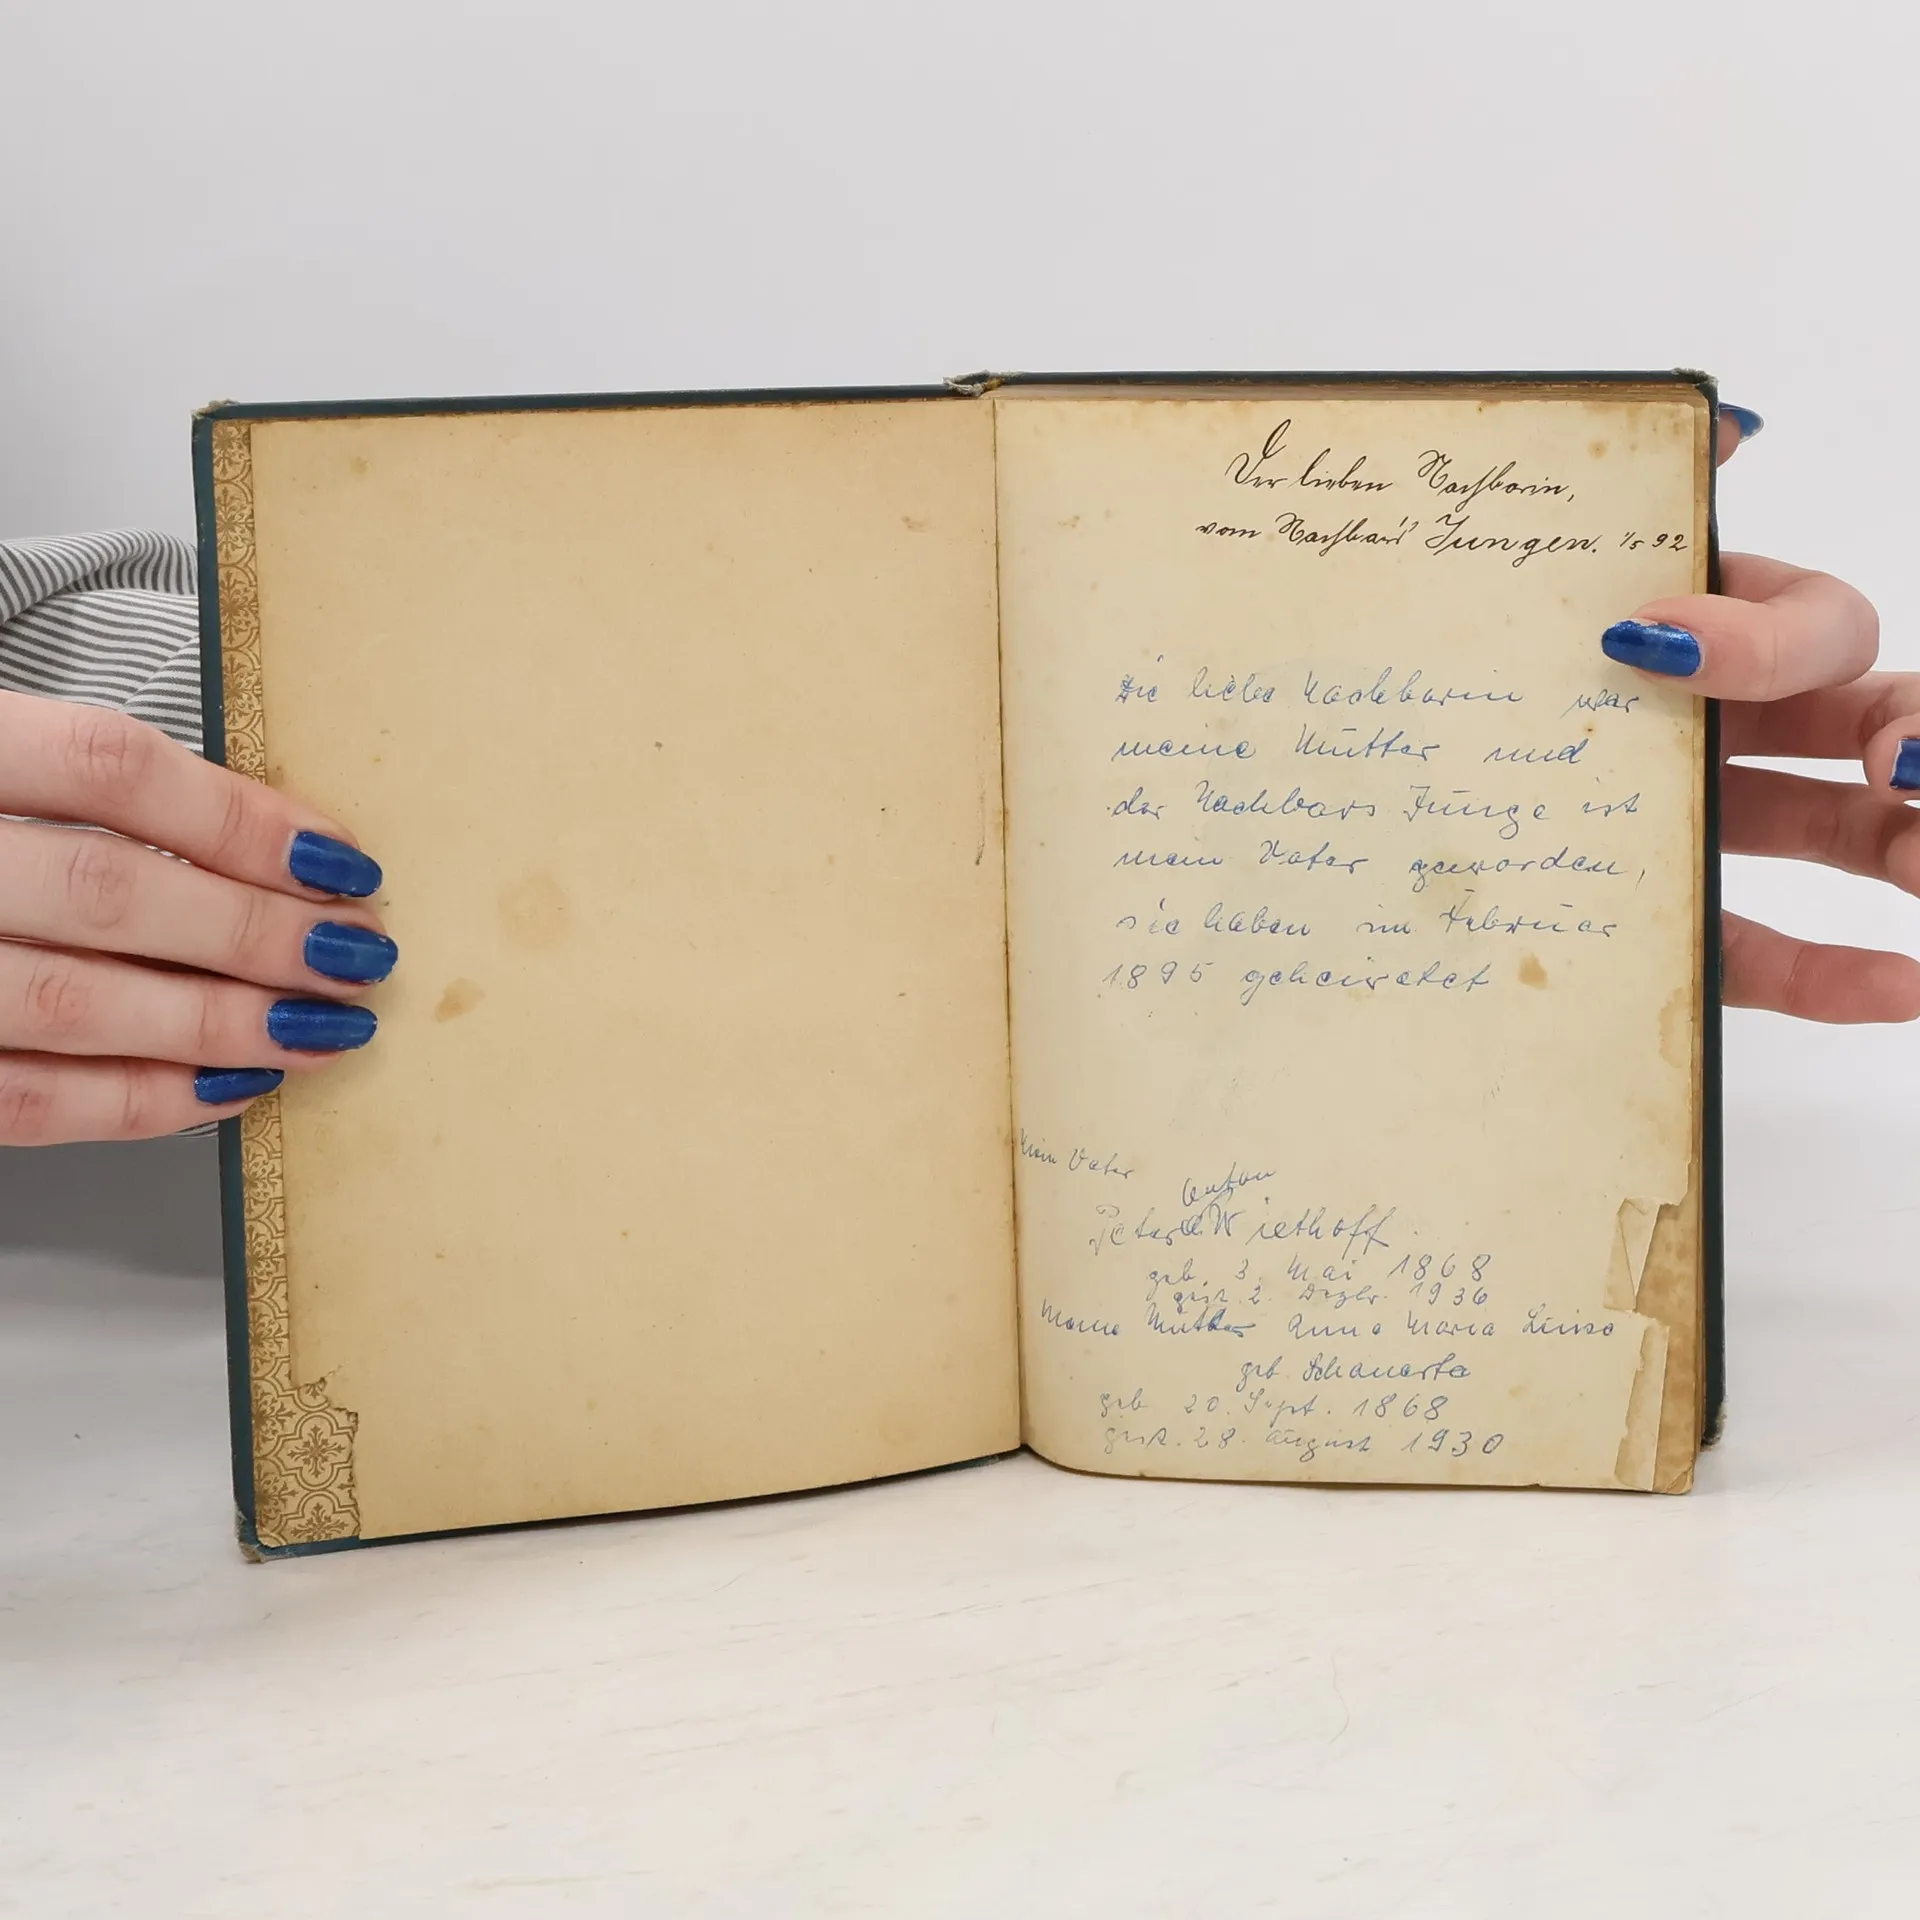 Der lieben Nachbarin,
vom Nachbar's Jungen. 1/5 92
Die liebe Nachbarin war
meine Mutter und
der Nachbars Junge ist
mein Vater geworden,
sie haben im Februar
1895 geheiratet
Mein Vater
Anton
Peter Wiethoff
geb. 3. Mai 1868
gest. 2. Dezbr. 1936
Meine Mutter Anna Maria Luise
geb. Schauerte
geb 20. Sept. 1868
gest. 28. August 1930